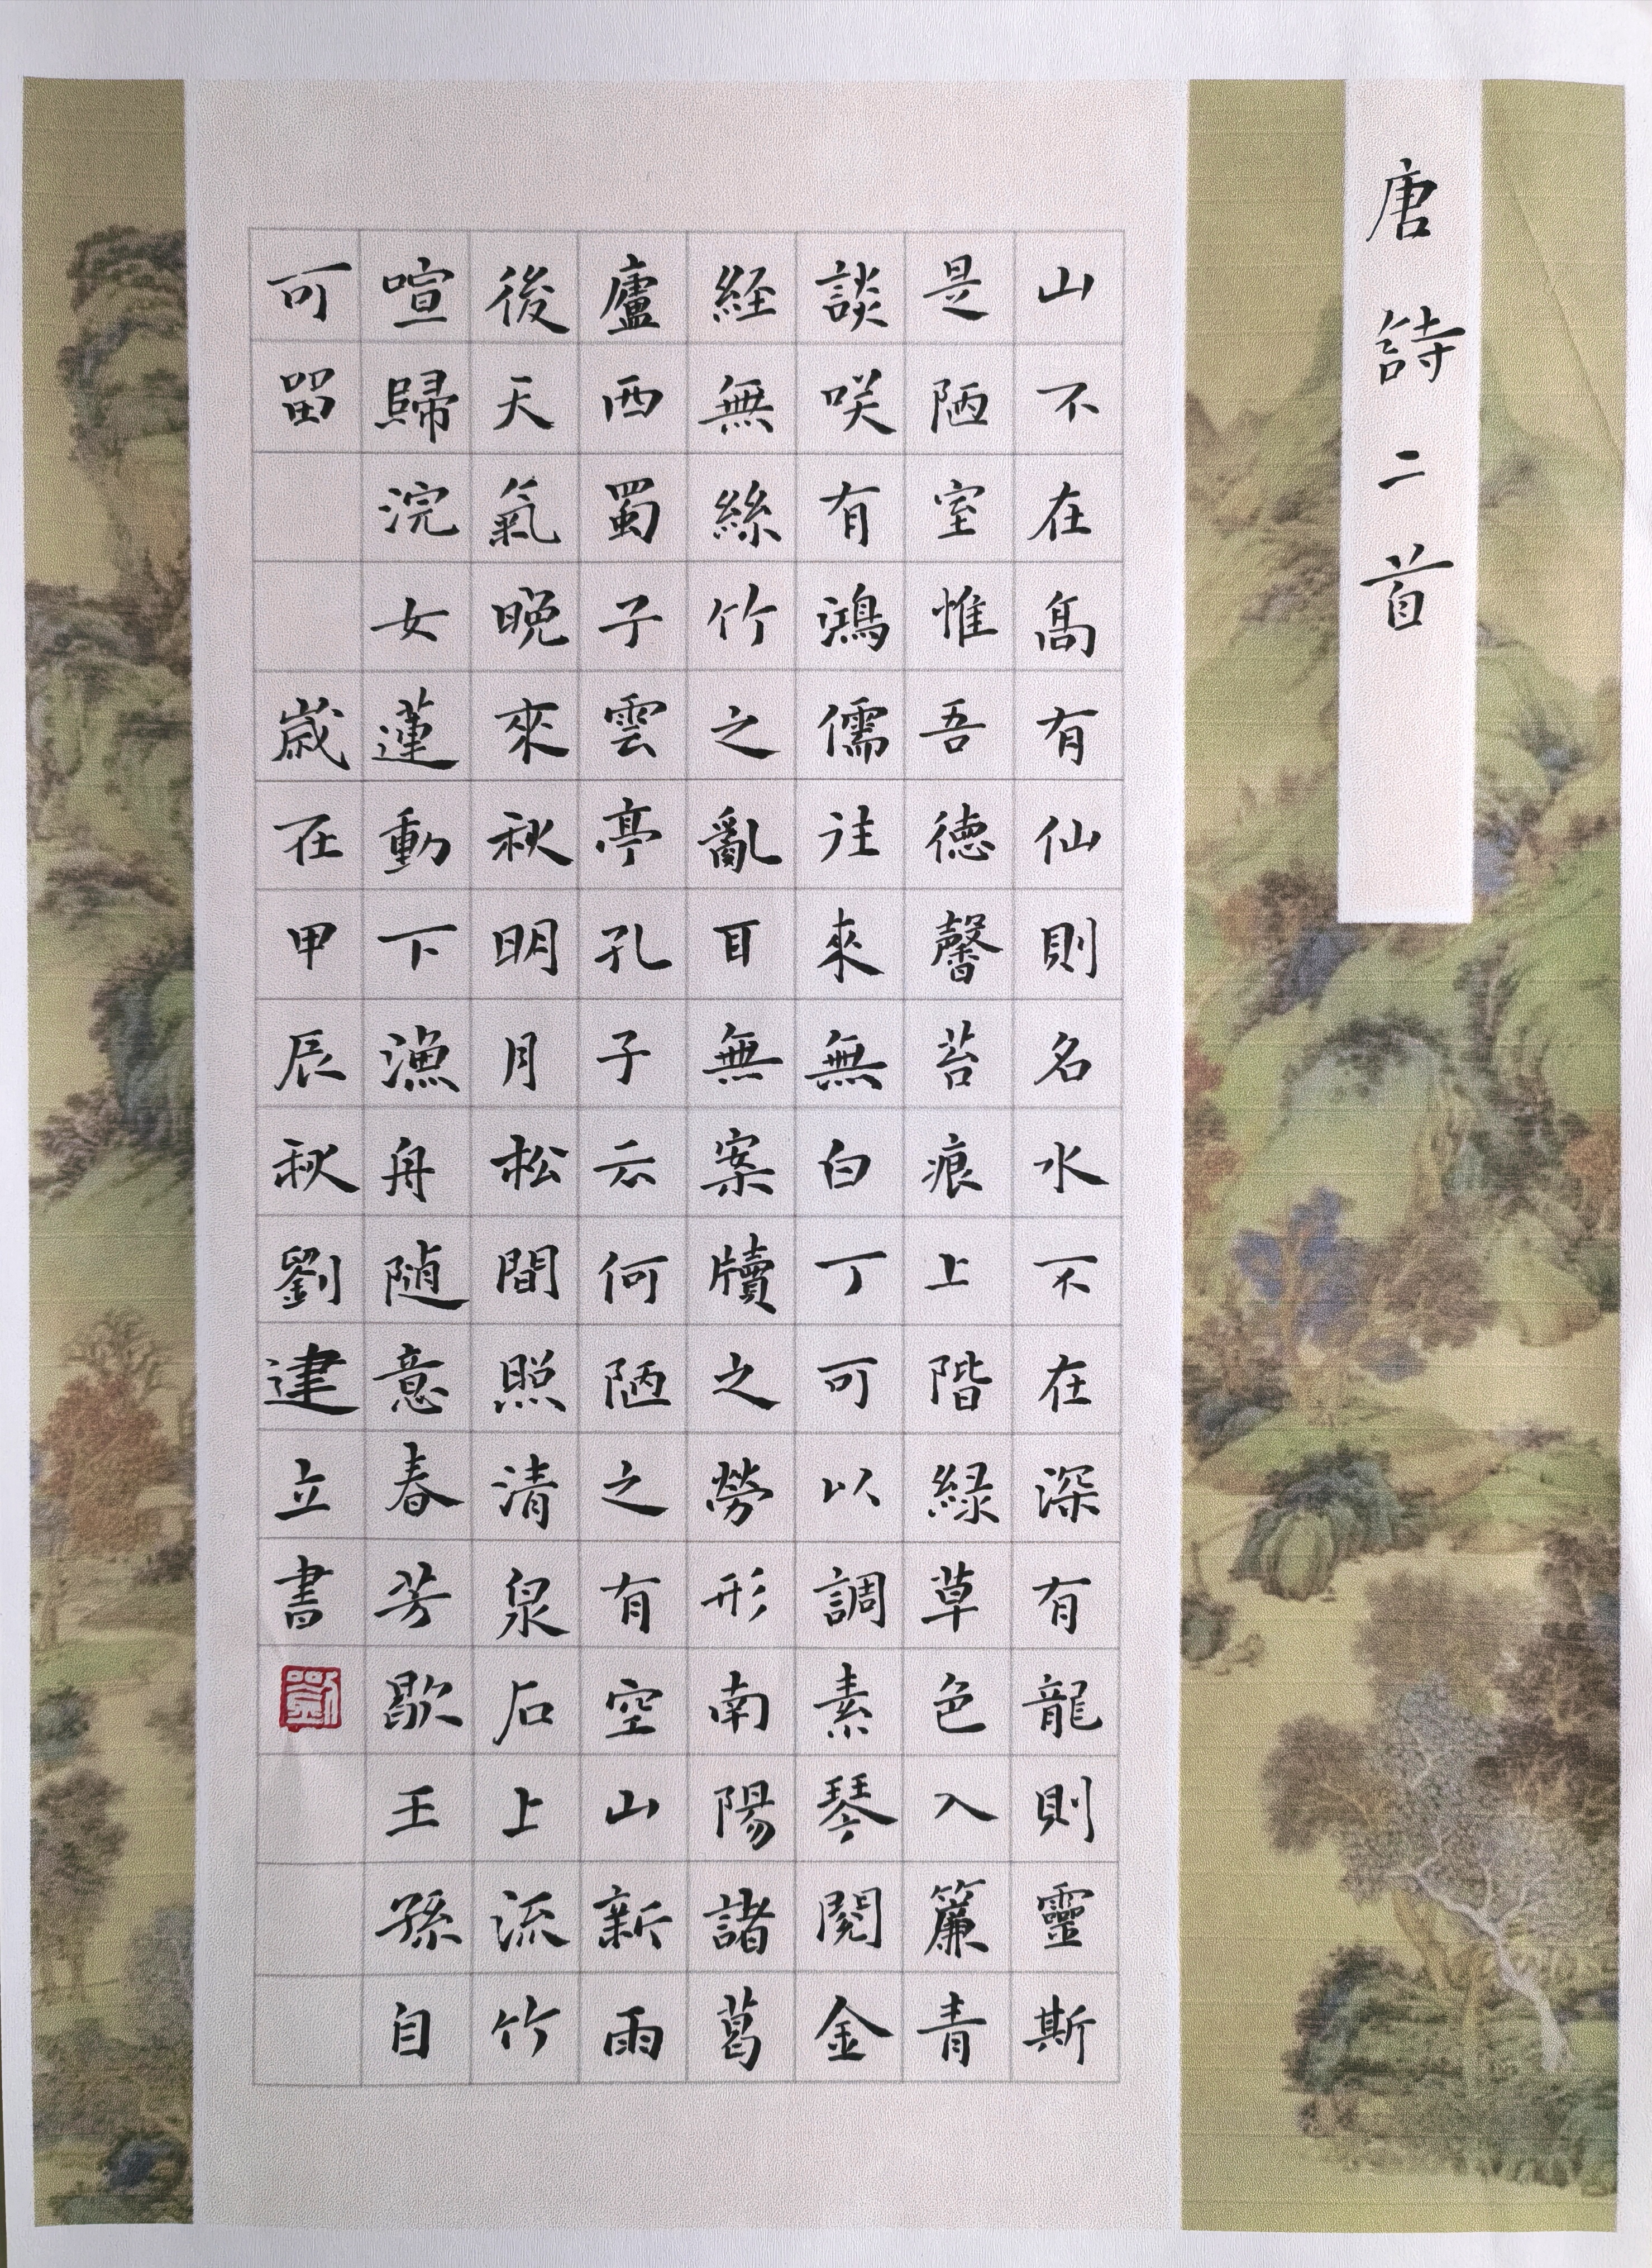 唐詩二首
山不在高有仙則名水不在深有龍則靈斯
是陋室惟吾德馨苔痕上階緑草色入簾青
談咲有鴻儒往來無白丁可以調素琴閱金
経無絲竹之亂耳無案牘之勞形南陽諸葛
廬西蜀子雲亭孔子云何陋之有空山新雨
後天氣晚來秋明月松間照清泉石上流竹
喧歸浣女蓮動下漁舟隨意春芳歇王孫自
可留
歲在甲辰秋劉建立書
劉